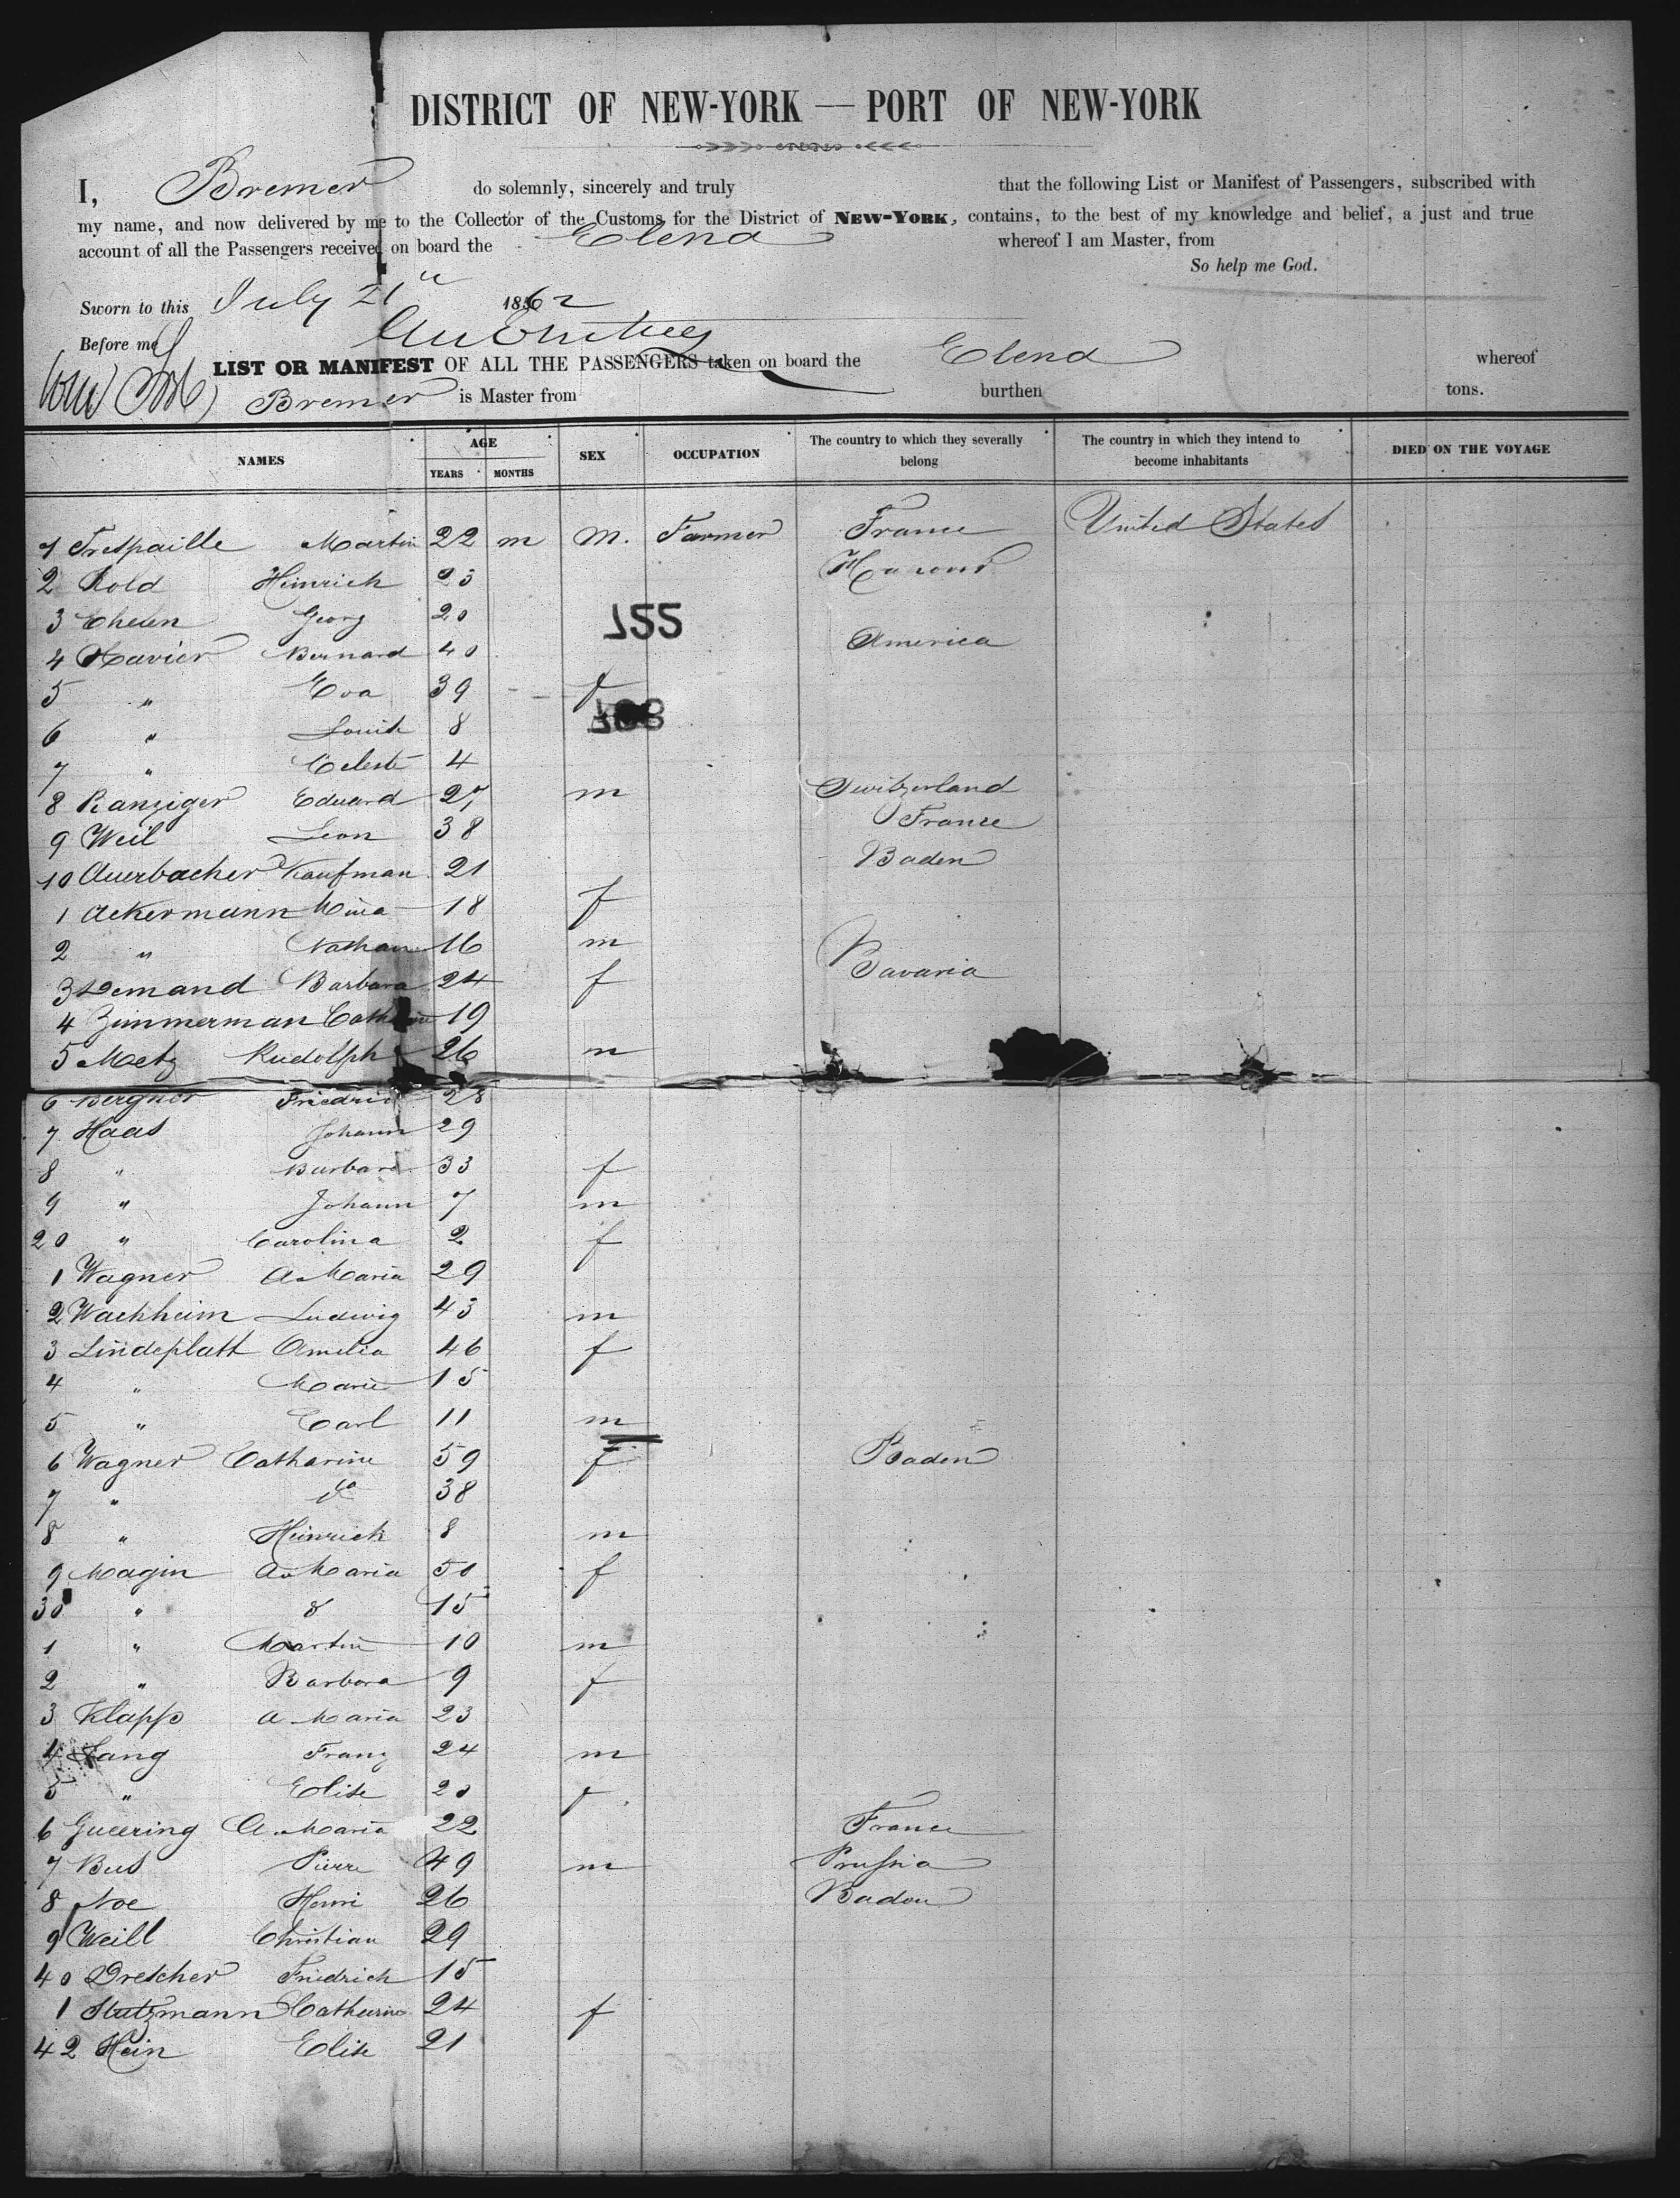 DISTRICT OF NEW-YORK — PORT OF NEW-YORK
I, Bremer do solemnly, sincerely and truly that the following List or Manifest of Passengers, subscribed with
my name, and now delivered by me to the Collector of the Customs for the District of NEW-YORK, contains, to the best of my knowledge and belief, a just and true
account of all the Passengers received on board the Elena whereof I am Master, from
So help me God.
Sworn to this July 21 1862
Before me
LIST OR MANIFEST OF ALL THE PASSENGERS taken on board the Elena whereof
Bremer is Master from burthen tons.
NAMES AGE YEARS MONTHS SEX OCCUPATION The country to which they severally belong The country in which they intend to become inhabitants DIED ON THE VOYAGE
1 Trespaille Martin 22 m m. Farmer France United States
2 Rold Heinrich 23
3 Georg 20
155
4 Xavier Bernard 40 America
5 " Eva 39 f
6 " Louise 8
7 " Celeste 4
8 Ranziger Eduard 27 m Switzerland
9 Weil Leon 38 France
10 Auerbacher Kaufman 21 Baden
1 Ackermann Mina 18 f
2 " Nathan 16 m
3 Demand Barbara 24 f Bavaria
4 Zimmerman 19
5 Metz Rudolph 26 m
6 Bergner 28
7 Haas Johann 29
8 " Barbara 33 f
9 " Johann 7 m
20 " Carolina 2 f
1 Wagner A Maria 29
2 Wachheim Ludwig 43 m
3 Lindeplatt Amelia 46 f
4 " Marie 15
5 " Carl 11 m
6 Wagner Catharine 59 f Baden
7 " do 38
8 " Heinrich 8 m
9 Magin A Maria 50 f
30 " 15
1 " Martin 10 m
2 " Barbara 9 f
3 Klapp A Maria 23
4 Lang Franz 24 m
5 " Elise 20 f
6 Gueering A. Maria 22 France
7 Bus Pierre 49 m Prussia
8 Noe Henri 26 Baden
9 Weill Christian 29
40 Drescher Friedrich 15
1 Stutzmann Catharine 24 f
42 Hein Elise 21